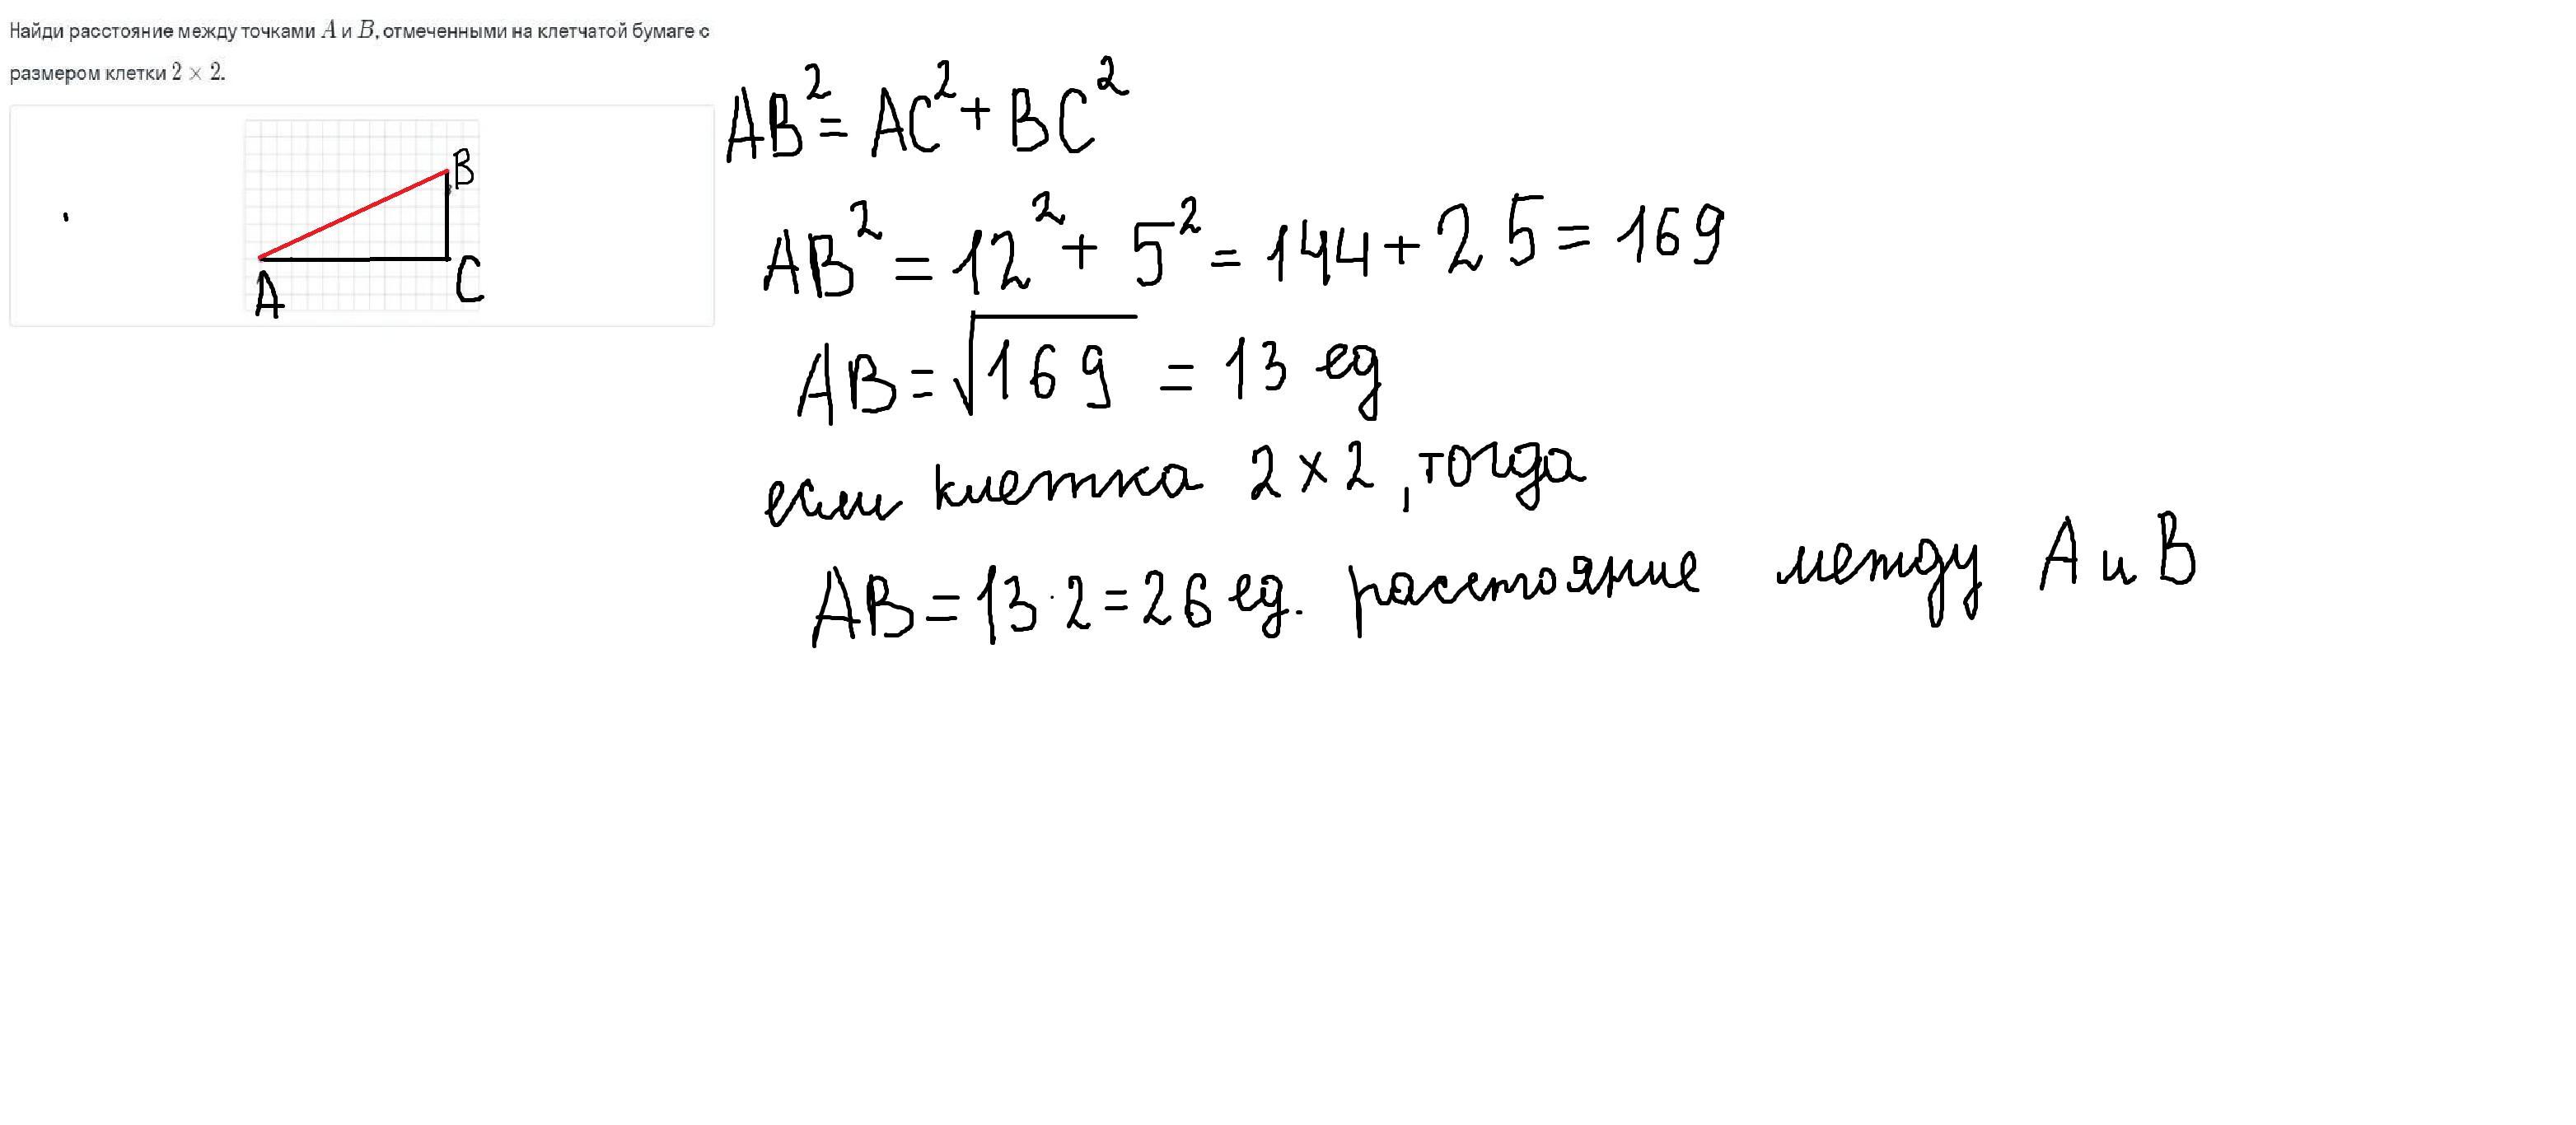 Найди расстояние между точками A и B, отмеченными на клетчатой бумаге с
размером клетки 2 × 2.
B
A
C
AB² = AC² + BC²
AB² = 12² + 5² = 144 + 25 = 169
AB = √169 = 13 ед
если клетка 2 × 2, тогда
AB = 13 · 2 = 26 ед. расстояние между A и B